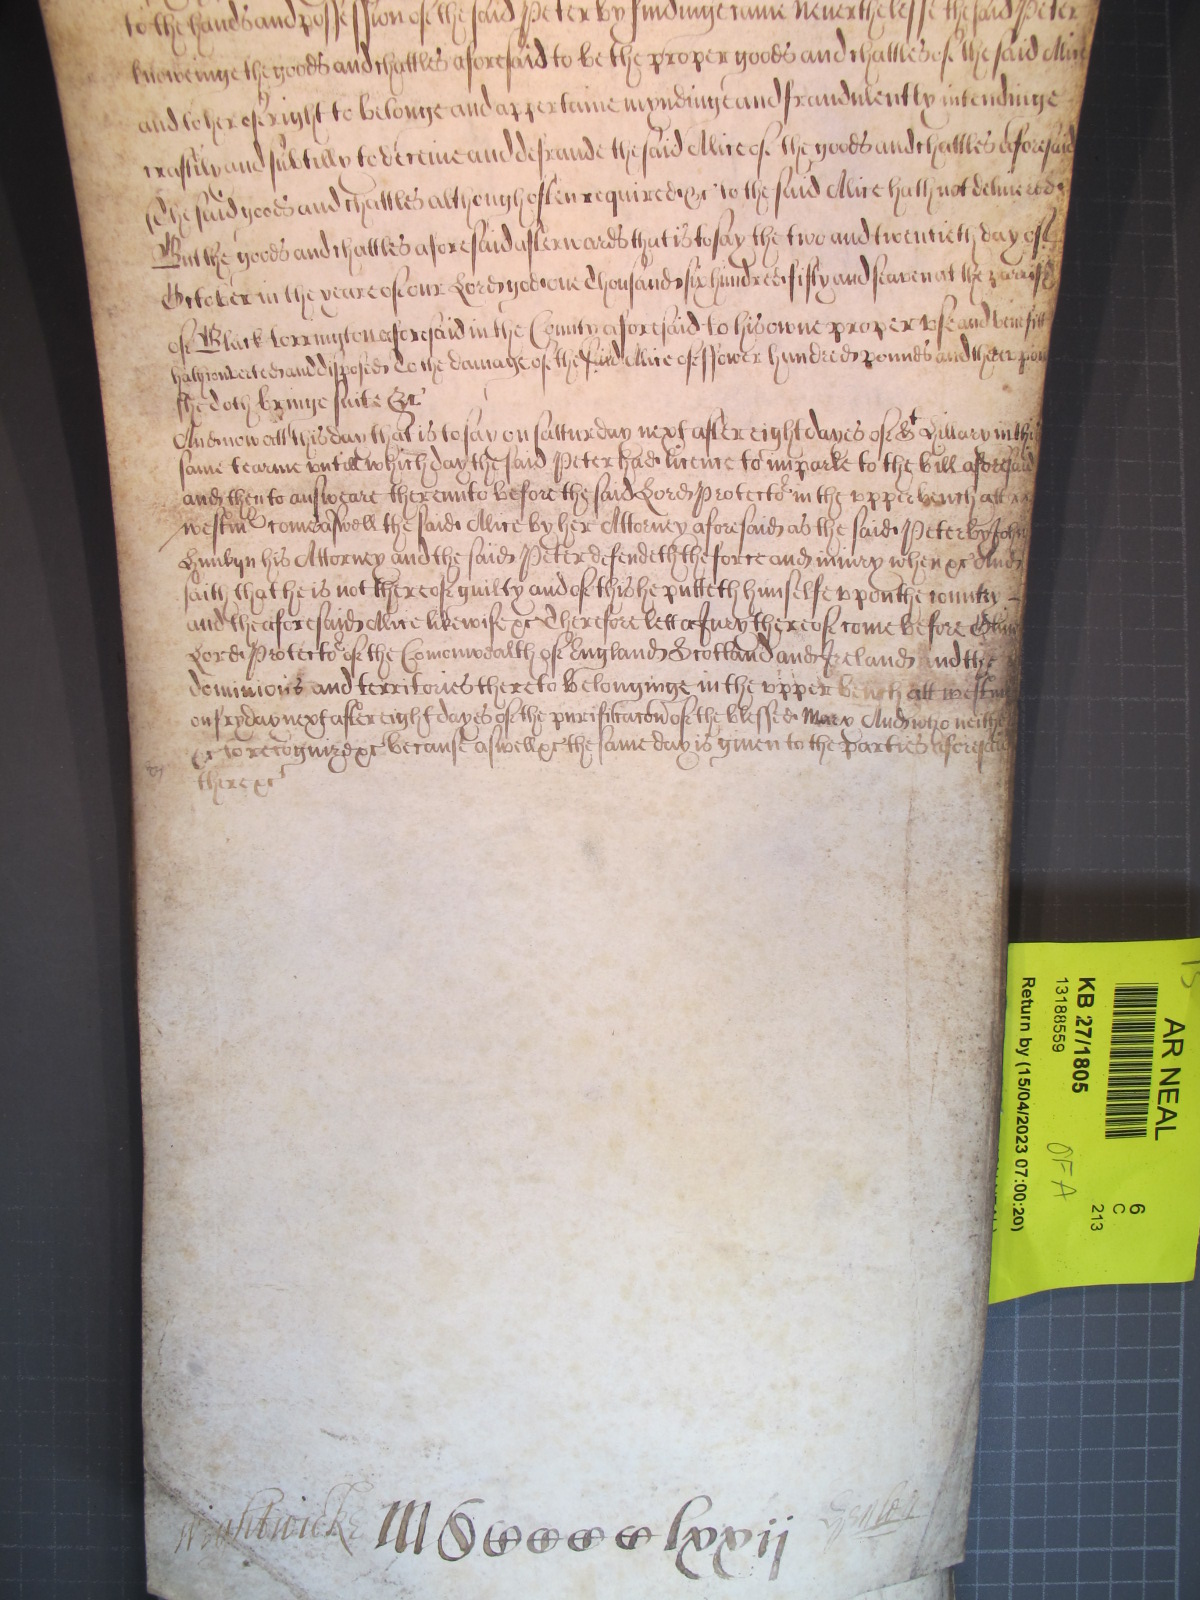 to the hands and possession of the said Peter by findinge came Neverthelesse the said Peter
knoweinge the goods and chattles aforesaid to be the proper goods and chattles of the said Alice
and to her of right to belonge and appertaine myndinge and fraudulently intendinge
craftily and subtilly to deceive and defraude the said Alice of the goods and chattles aforesaid
The said goods and chattles although often required &c to the said Alice hath not delivered
But the goods and chattles aforesaid afterwards that is to say the two and twentieth day of
October in the yeare of our Lord god one Thousand six hundred fifty and seaven at the parrish
of Black Torrington aforesaid in the County aforesaid to his owne proper use and benefitt
hath converted and disposed To the damage of the said Alice of ffower hundred pounds and thereupon
she doth bringe suite &c
And now att this day that is to say on satturday next after eight dayes of St Hillary in this
same tearme untill which day the said Peter had licence to imparle to the bill aforesaid
and then to answeare thereunto before the said Lord Protector in the upper bench att
westmr come aswell the said Alice by her Attorney aforesaid as the said Peter by John
his Attorney and the said Peter defendeth the force and iniury when &c And
saith that he is not thereof guilty and of this he putteth himselfe upon the countrey
and the aforesaid Alice likewise &c Therefore lett a Jury thereof come before Oliver
Lord Protector of the Comonwealth of England Scotland and Ireland and the
dominions and territories thereto belonginge in the upper bench att westmr
on fryday next after eight dayes of the purificacon of the blessed Mary And who neither
&c to recognize &c because aswell &c the same day is given to the parties aforesaid
there &c
Wightwicke MDCCCCClxxij
AR NEAL
6
C
213
KB 27/1805
13188559
OFA
Return by (15/04/2023 07:00:20)